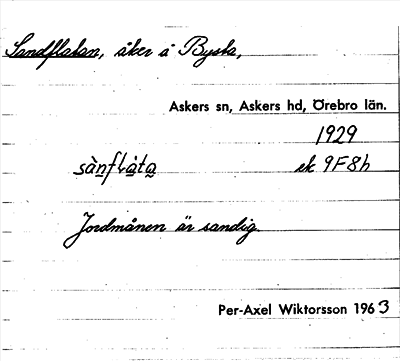 Sandflatan, åker å Bysta,
Askers sn, Askers hd, Örebro län.
1929
sànflàta ek 9F8h
Jordmånen är sandig.
Per-Axel Wiktorsson 1963